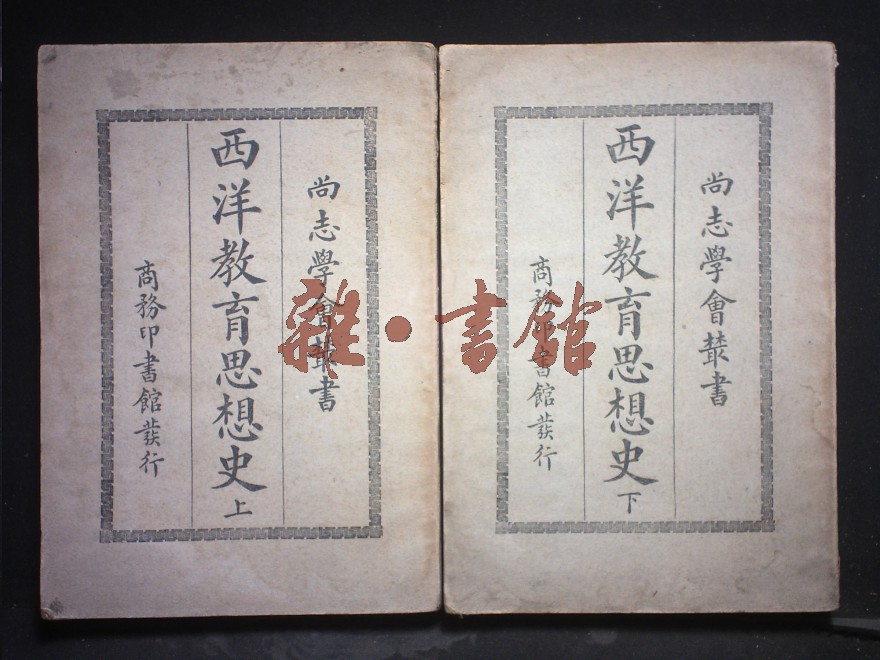 尚志學會叢書
西洋教育思想史 上
商務印書館發行
尚志學會叢書
西洋教育思想史 下
商務印書館發行
雜·書館